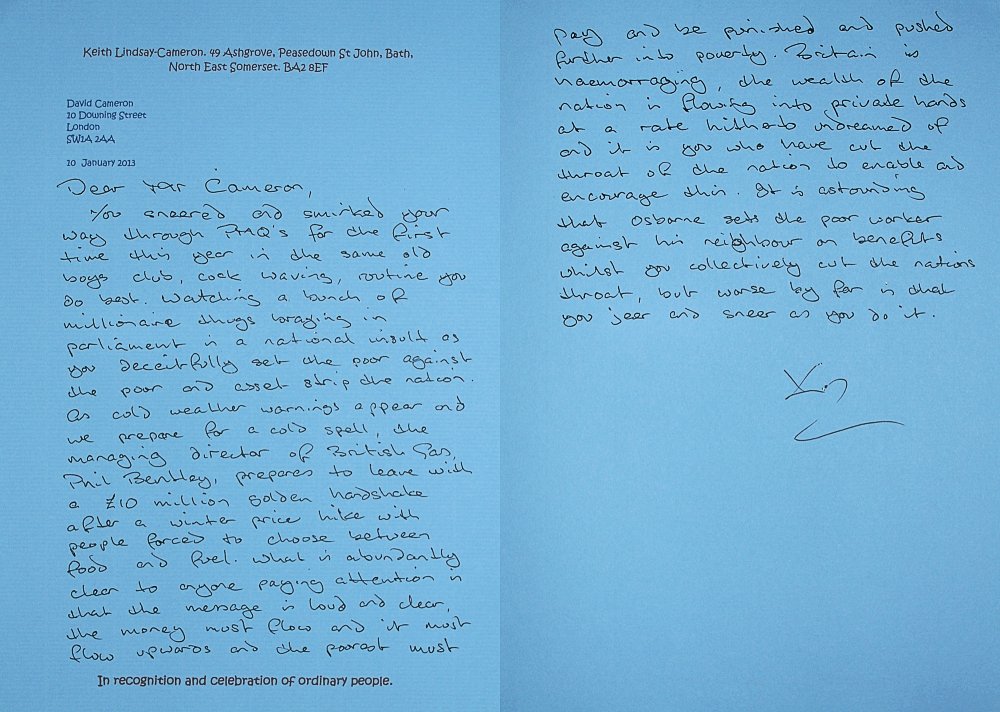 Keith Lindsay-Cameron. 49 Ashgrove, Peasedown St John, Bath,
North East Somerset. BA2 8EF
David Cameron
10 Downing Street
London
SW1A 2AA
10 January 2013
Dear Mr Cameron,
You sneered and smirked your
way through PMQ's for the first
time this year in the same old
boys club, cock waving, routine you
do best. Watching a bunch of
millionaire thugs braying in
parliament is a national insult as
you deceitfully set the poor against
the poor and asset strip the nation.
As cold weather warnings appear and
we prepare for a cold spell, the
managing director of British Gas,
Phil Bentley, prepares to leave with
a £10 million golden handshake
after a winter price hike with
people forced to choose between
food and fuel. What is abundantly
clear to anyone paying attention is
that the message is loud and clear,
the money must flow and it must
flow upwards and the poorest must
In recognition and celebration of ordinary people.
pay and be punished and pushed
further into poverty. Britain is
haemorraging, the wealth of the
nation is flowing into private hands
at a rate hitherto undreamed of
and it is you who have cut the
throat of the nation to enable and
encourage this. It is astounding
that Osborne sets the poor worker
against his neighbour on benefits
whilst you collectively cut the nations
throat, but worse by far is that
you jeer and sneer as you do it.